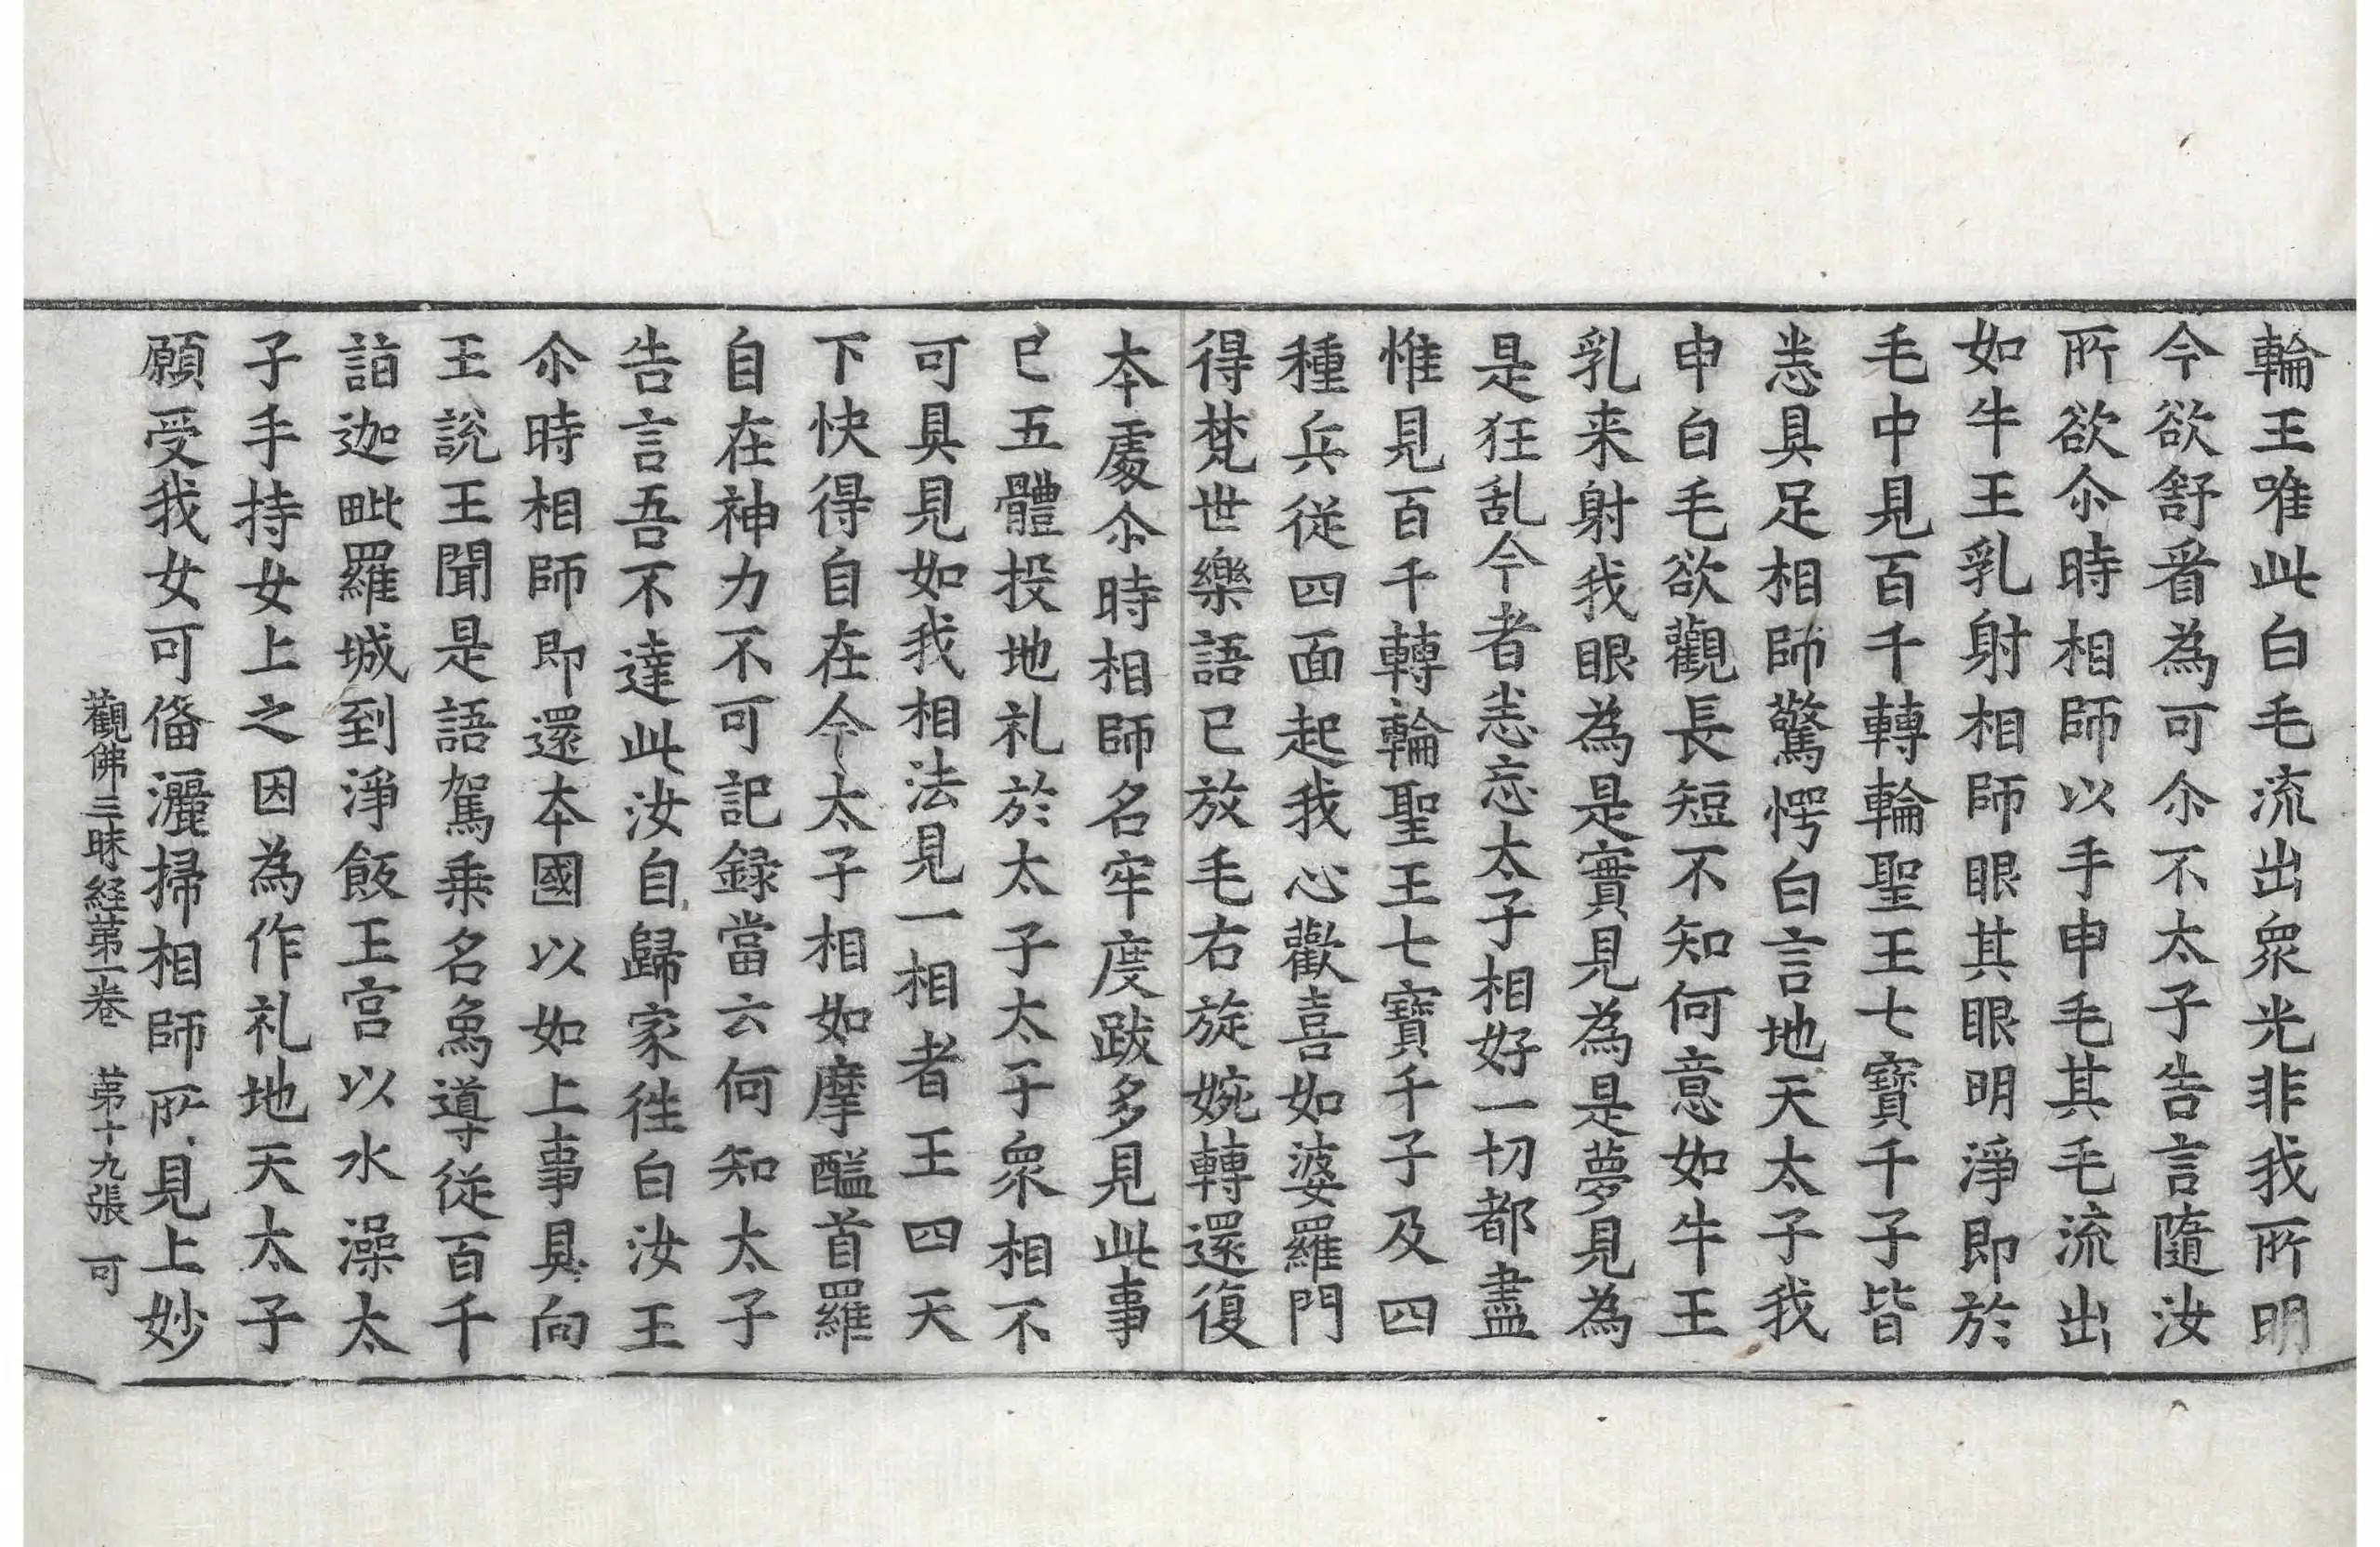 輪王唯此白毛流出衆光非我所明
今欲舒看為可尒不太子告言隨汝
所欲尒時相師以手申毛其毛流出
如牛王乳射相師眼其眼明淨即於
毛中見百千轉輪聖王七寶千子皆
悉具足相師驚愕白言地天太子我
申白毛欲觀長短不知何意如牛王
乳来射我眼為是實見為是夢見為
是狂乱今者悉忘太子相好一切都盡
惟見百千轉輪聖王七寶千子及四
種兵従四面起我心歡喜如婆羅門
得梵世樂語已放毛右旋婉轉還復
本處尒時相師名牢度跋多見此事
已五體投地礼於太子太子衆相不
可具見如我相法見一相者王四天
下快得自在今太子相如摩醯首羅
自在神力不可記録當云何知太子
告言吾不達此汝自歸家徃白汝王
尒時相師即還本國以如上事具向
王說王聞是語駕乗名象導従百千
詣迦毗羅城到淨飯王宫以水澡太
子手持女上之因為作礼地天太子
願受我女可俻灑掃相師所見上妙
觀佛三昧経苐一巻 苐十九張 可